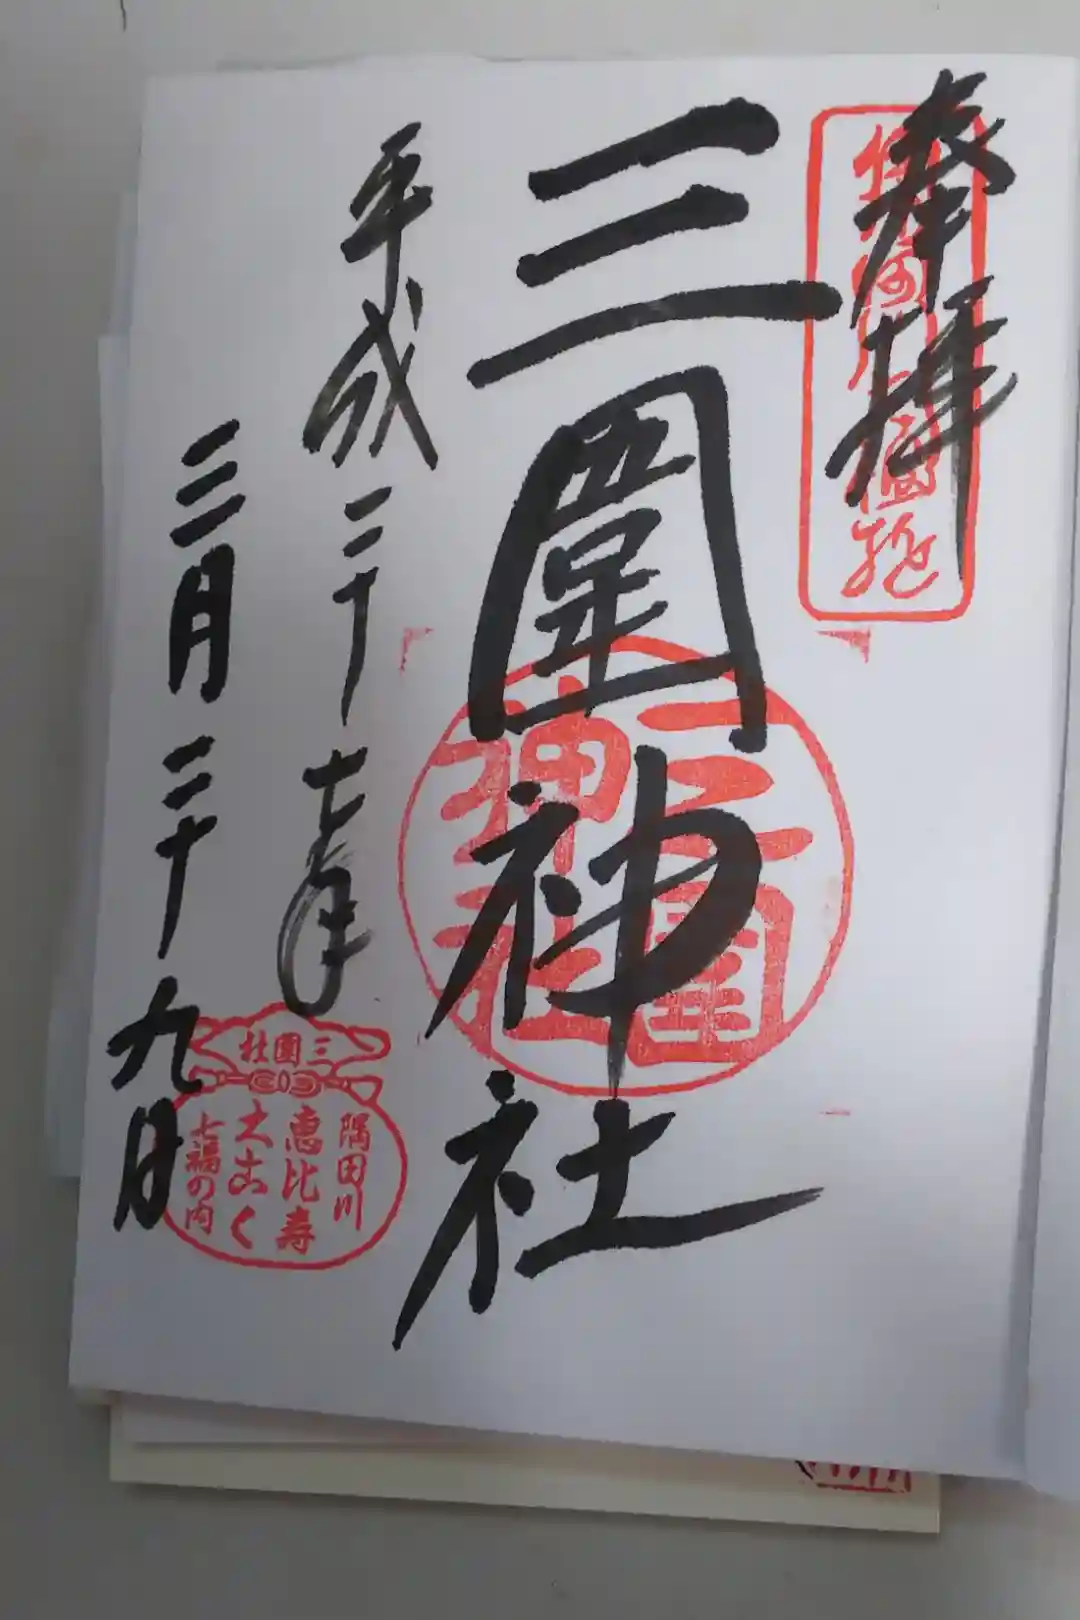 奉拝
三圍神社
三圍神社
平成二十七年
三月二十九日
三圍社
隅田川
恵比寿
大古く
七福の内